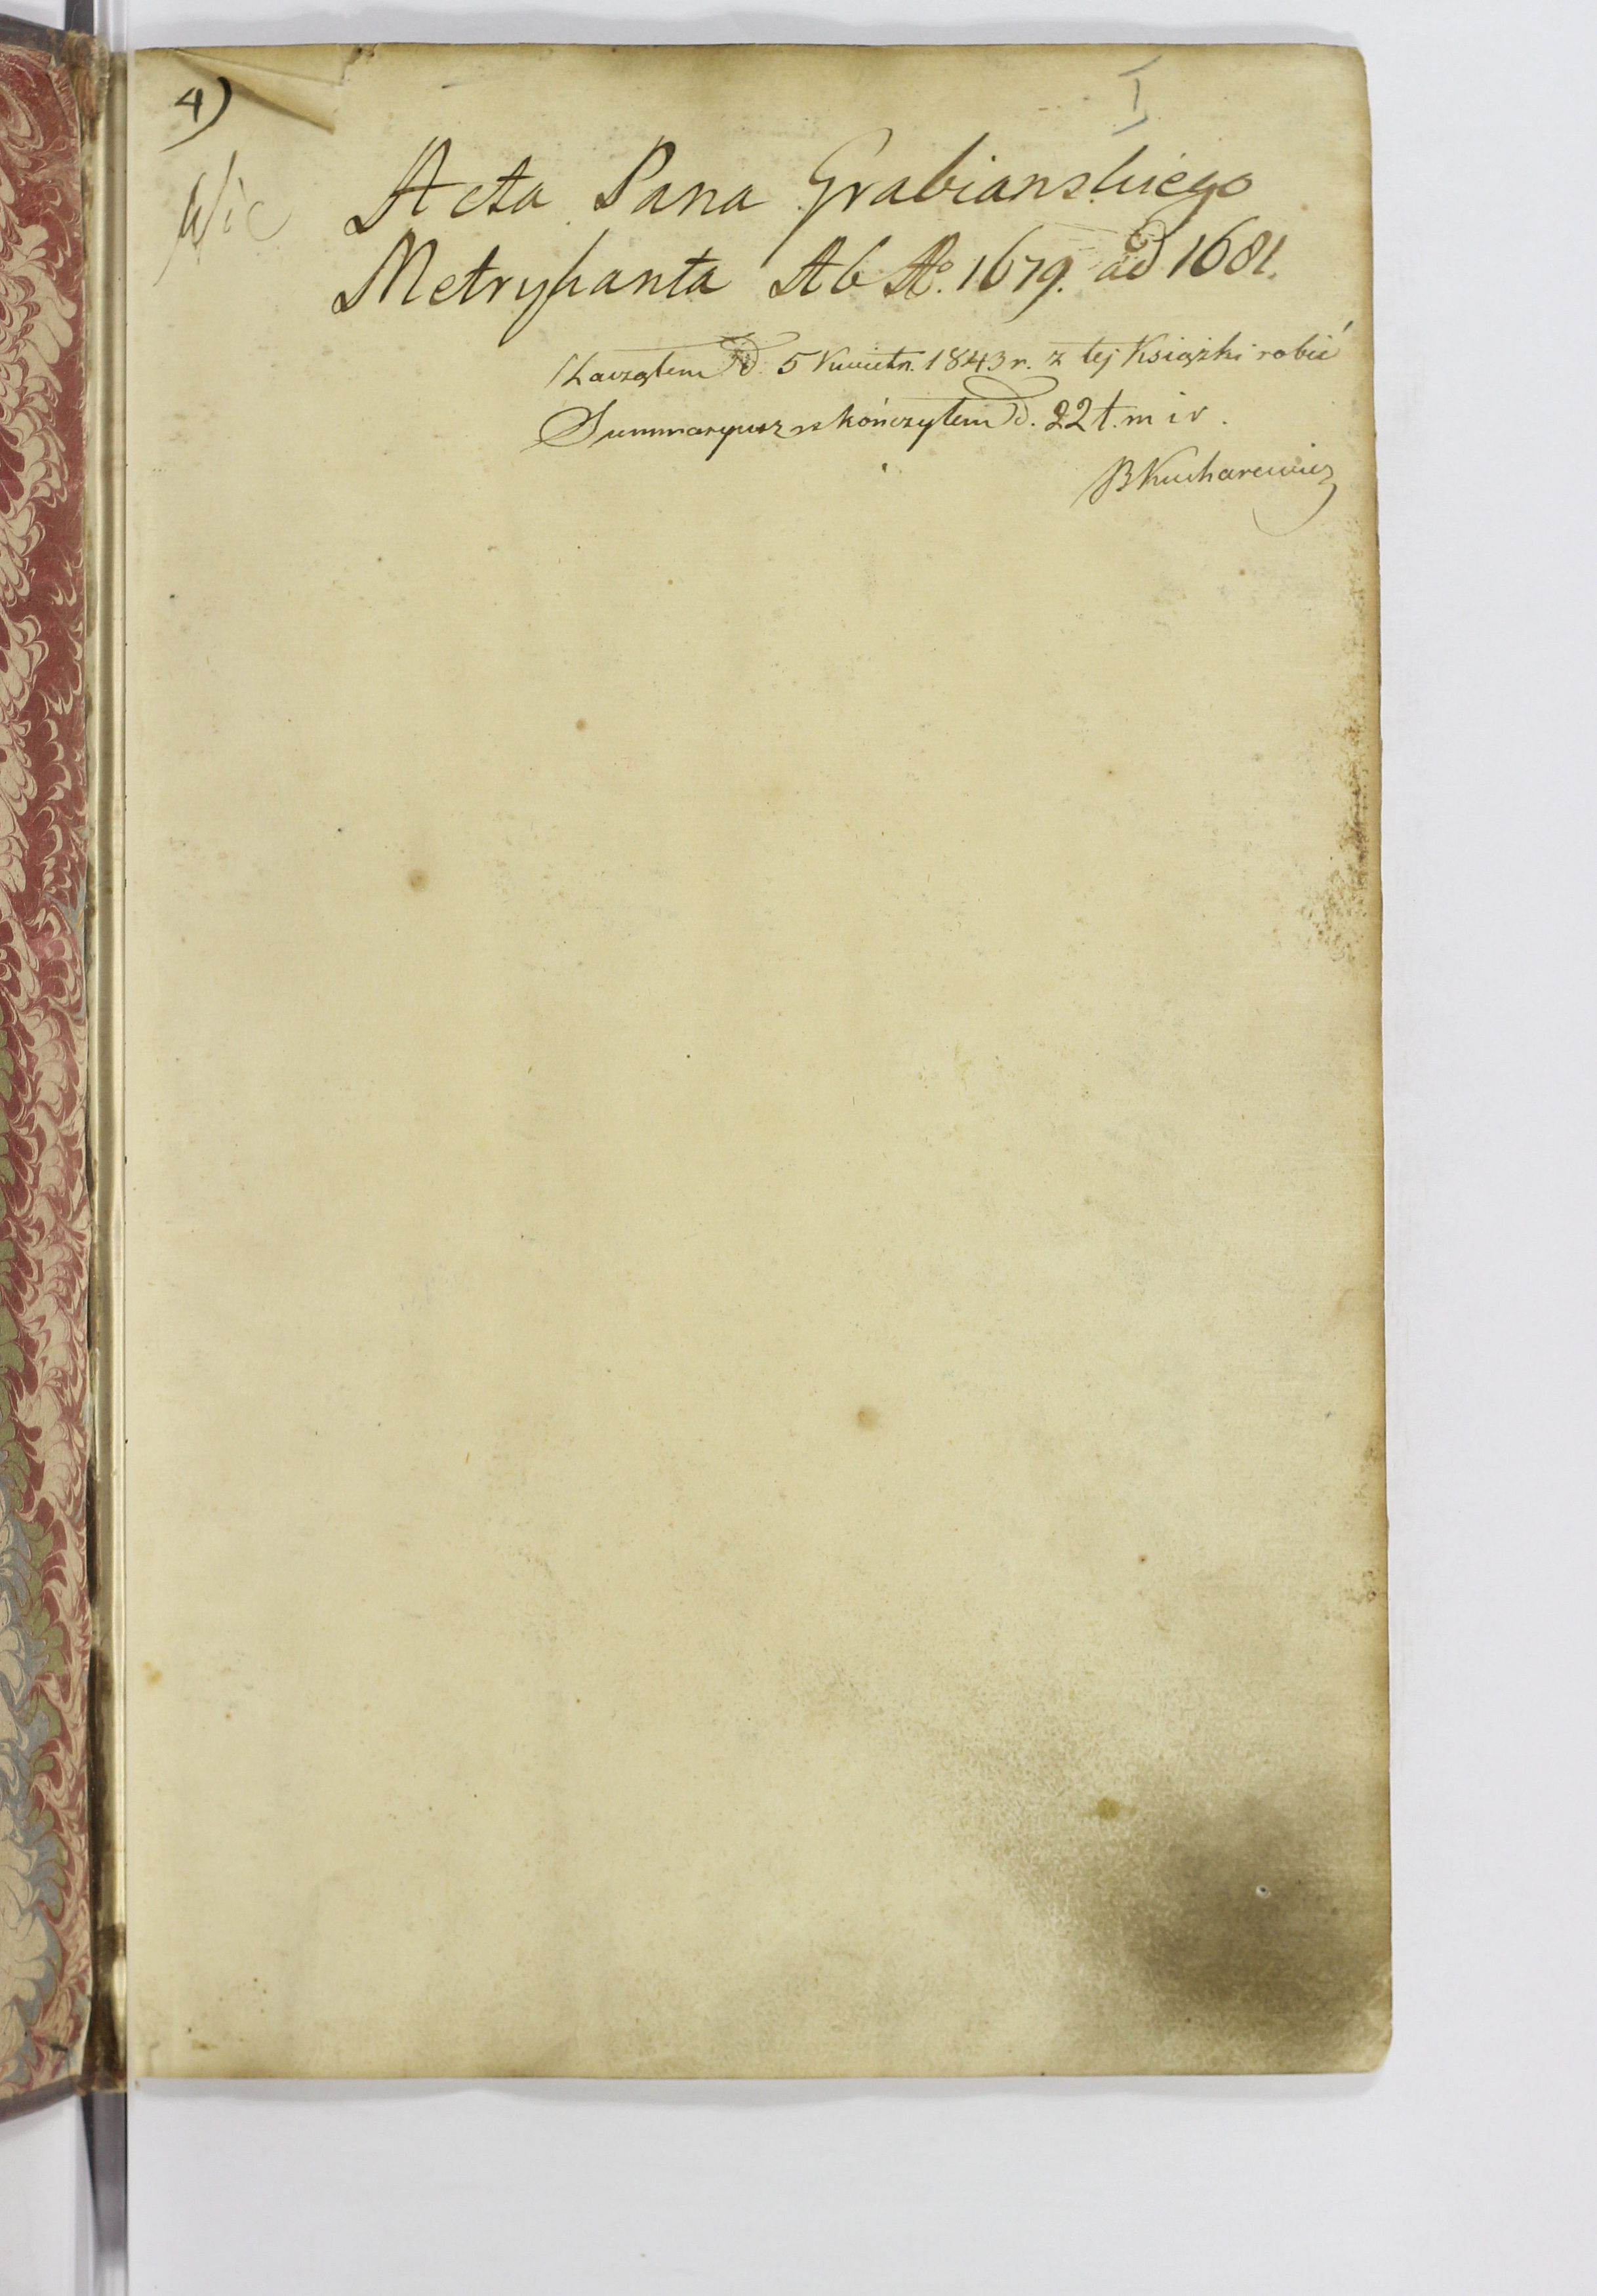 4)
I
Acta Pana Grabianskiego
Metrykanta Ab Ao. 1679. ad 1681.
Zacząłem d. 5 Kwietn. 1843 r. z tej Książki robić
Summaryusz skończyłem d. 22 t. m i r.
B Kucharewicz